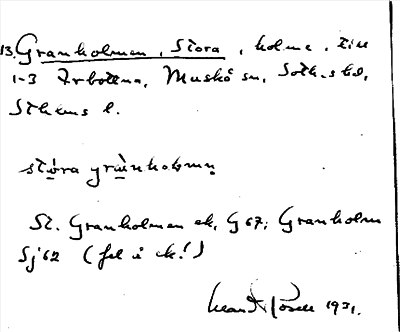 13. Granholmen, Stora, holme, till
1-3 Arbottna, Muskö sn, Soth.s hd,
Sthlms l.
stora granholmen
St. Granholmen ek. G 67; Granholm
Sj 62 (fel i ek!)
1931.